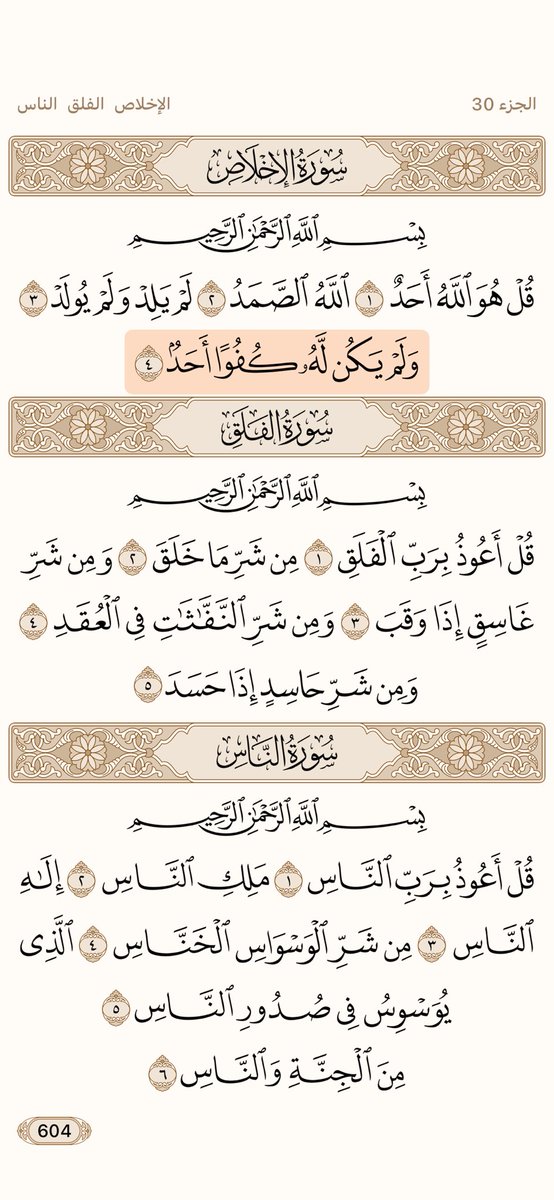 الجزء 30
الإخلاص الفلق الناس
سُورَةُ الإِخْلَاصِ
بِسْمِ ٱللَّهِ ٱلرَّحْمَٰنِ ٱلرَّحِيمِ
قُلْ هُوَ ٱللَّهُ أَحَدٌ ١ ٱللَّهُ ٱلصَّمَدُ ٢ لَمْ يَلِدْ وَلَمْ يُولَدْ ٣
وَلَمْ يَكُن لَّهُۥ كُفُوًا أَحَدٌۢ ٤
سُورَةُ الفَلَقِ
بِسْمِ ٱللَّهِ ٱلرَّحْمَٰنِ ٱلرَّحِيمِ
قُلْ أَعُوذُ بِرَبِّ ٱلْفَلَقِ ١ مِن شَرِّ مَا خَلَقَ ٢ وَمِن شَرِّ
غَاسِقٍ إِذَا وَقَبَ ٣ وَمِن شَرِّ ٱلنَّفَّٰثَٰتِ فِى ٱلْعُقَدِ ٤
وَمِن شَرِّ حَاسِدٍ إِذَا حَسَدَ ٥
سُورَةُ النَّاسِ
بِسْمِ ٱللَّهِ ٱلرَّحْمَٰنِ ٱلرَّحِيمِ
قُلْ أَعُوذُ بِرَبِّ ٱلنَّاسِ ١ مَلِكِ ٱلنَّاسِ ٢ إِلَٰهِ
ٱلنَّاسِ ٣ مِن شَرِّ ٱلْوَسْوَاسِ ٱلْخَنَّاسِ ٤ ٱلَّذِى
يُوَسْوِسُ فِى صُدُورِ ٱلنَّاسِ ٥
مِنَ ٱلْجِنَّةِ وَٱلنَّاسِ ٦
604